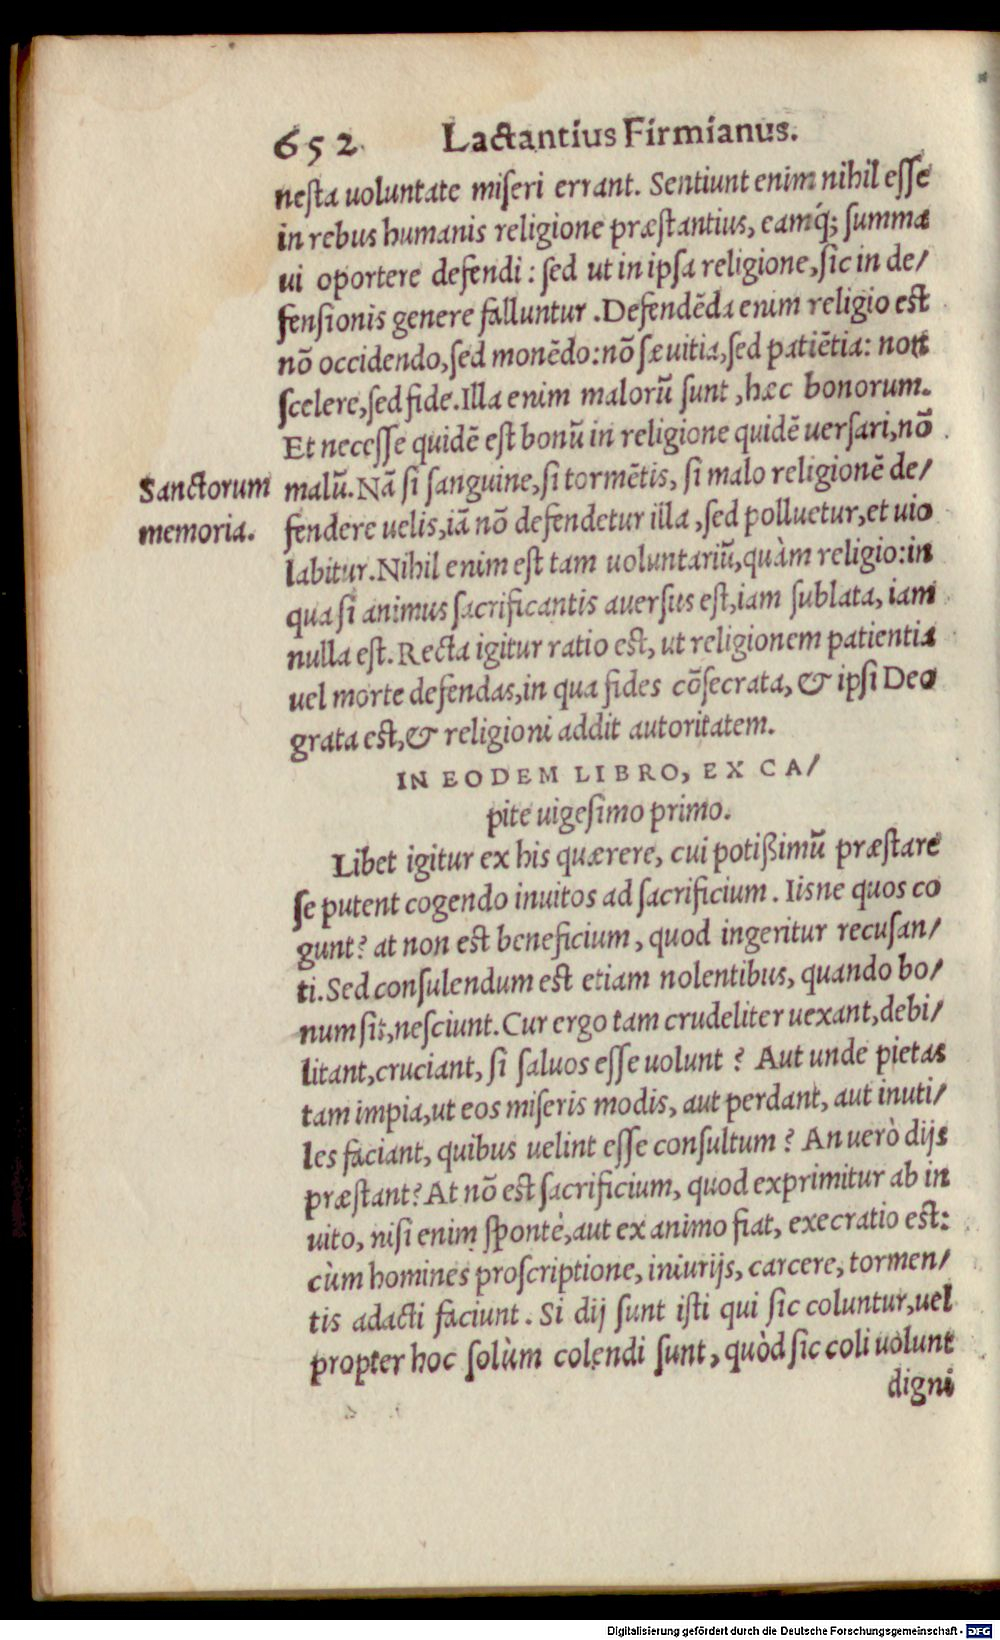 652 Lactantius Firmianus.
neſta uoluntate miſeri errant. Sentiunt enim nihil eſſe
in rebus humanis religione præſtantius, eamq́; ſumma
ui oportere defendi : ſed ut in ipſa religione, ſic in de/
fenſionis genere falluntur . Defendẽda enim religio eſt
nõ occidendo, ſed monẽdo: nõ ſæuitia, ſed patiẽtia: non
ſcelere, ſed fide. Illa enim malorũ ſunt , hæc bonorum.
Et neceſſe quidẽ eſt bonũ in religione quidẽ uerſari, nõ
Sanctorum
memoria.
malũ. Nã ſi ſanguine, ſi tormẽtis, ſi malo religionẽ de/
fendere uelis, iã nõ defendetur illa , ſed polluetur, et uio
labitur. Nihil enim eſt tam uoluntariũ, quàm religio: in
qua ſi animus ſacrificantis auerſus eſt, iam ſublata, iam
nulla eſt. Recta igitur ratio eſt, ut religionem patientia
uel morte defendas, in qua fides cõſecrata, & ipſi Deo
grata eſt, & religioni addit autoritatem.
IN EODEM LIBRO, EX CA/
pite uigeſimo primo.
Libet igitur ex his quærere, cui potißimũ præſtare
ſe putent cogendo inuitos ad ſacrificium . Iisne quos co
gunt? at non eſt beneficium , quod ingeritur recuſan/
ti. Sed conſulendum eſt etiam nolentibus, quando bo/
num ſit, neſciunt. Cur ergo tam crudeliter uexant, debi/
litant, cruciant, ſi ſaluos eſſe uolunt ? Aut unde pietas
tam impia, ut eos miſeris modis, aut perdant, aut inuti/
les faciant, quibus uelint eſſe conſultum ? An uerò dijs
præſtant? At nõ eſt ſacrificium, quod exprimitur ab in
uito, niſi enim ſpontè, aut ex animo fiat, execratio eſt:
cùm homines proſcriptione, iniurijs, carcere, tormen/
tis adacti faciunt . Si dij ſunt iſti qui ſic coluntur, uel
propter hoc ſolùm colendi ſunt , quòd ſic coli uolunt
digni
Digitalisierung gefördert durch die Deutsche Forschungsgemeinschaft - DFG